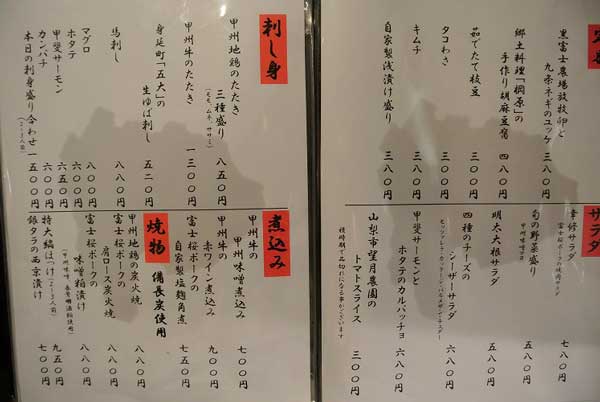 黒富士農場放牧卵と
九条ネギのユッケ 三八〇円
郷土料理「桐原」の
手作り胡麻豆腐 四八〇円
茹でたて枝豆 三〇〇円
タコわさ 三〇〇円
キムチ 三八〇円
自家製浅漬け盛り 三八〇円
サラダ
幸修サラダ
富士桜ポークの焼肉サラダ 七八〇円
旬の野菜盛り
甲州味噌マヨ 五八〇円
明太大根サラダ 五八〇円
四種のチーズの
シーザーサラダ 六八〇円
甲斐サーモンと
ホタテのカルパッチョ 六八〇円
山梨市望月農園の
トマトスライス 三〇〇円
時期で品切れになる事がございます
刺し身
甲州地鶏のたたき
三種盛り 八五〇円
(モモ、ムネ、ササミ)
甲州牛のたたき 一三〇〇円
身延町「五大」の
生ゆば刺し 五二〇円
馬刺し 八八〇円
マグロ 八〇〇円
ホタテ 六〇〇円
甲斐サーモン 六五〇円
カンパチ 六〇〇円
本日の刺身盛り合わせ 一五〇〇円
(2〜3人前)
煮込み
甲州牛の
甲州味噌煮込み 七〇〇円
甲州牛の
赤ワイン煮込み 九〇〇円
富士桜ポークの
自家製塩麹角煮 七五〇円
焼物 備長炭使用
甲州地鶏の炭火焼 八八〇円
富士桜ポークの
肩ロース炭火焼 八八〇円
富士桜ポークの
味噌粕漬け 八八〇円
特大縞ほっけ(2〜3人前) 九五〇円
銀タラの西京漬け 七〇〇円